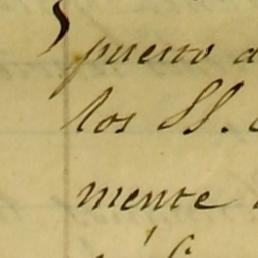 puerro a
los SS.
mente